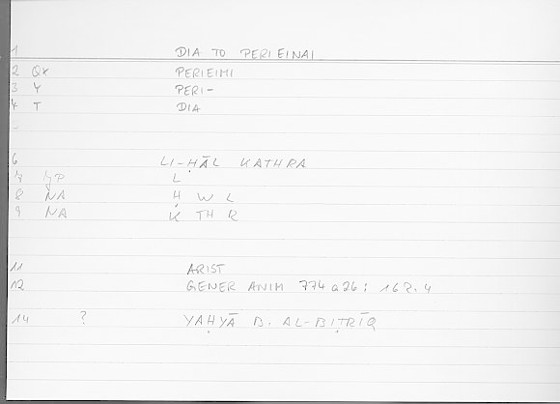 1 DIA TO PERIEINAI
2 QX PERIEIMI
3 Y PERI-
4 T DIA
6 LI-ḤĀL KATHRA
7 JP L
8 NA Ḥ W L
9 NA K TH R
11 ARIST
12 GENER ANIM 774a26; 162.4
14 ? YAḤYĀ B. AL-BIṬRĪQ